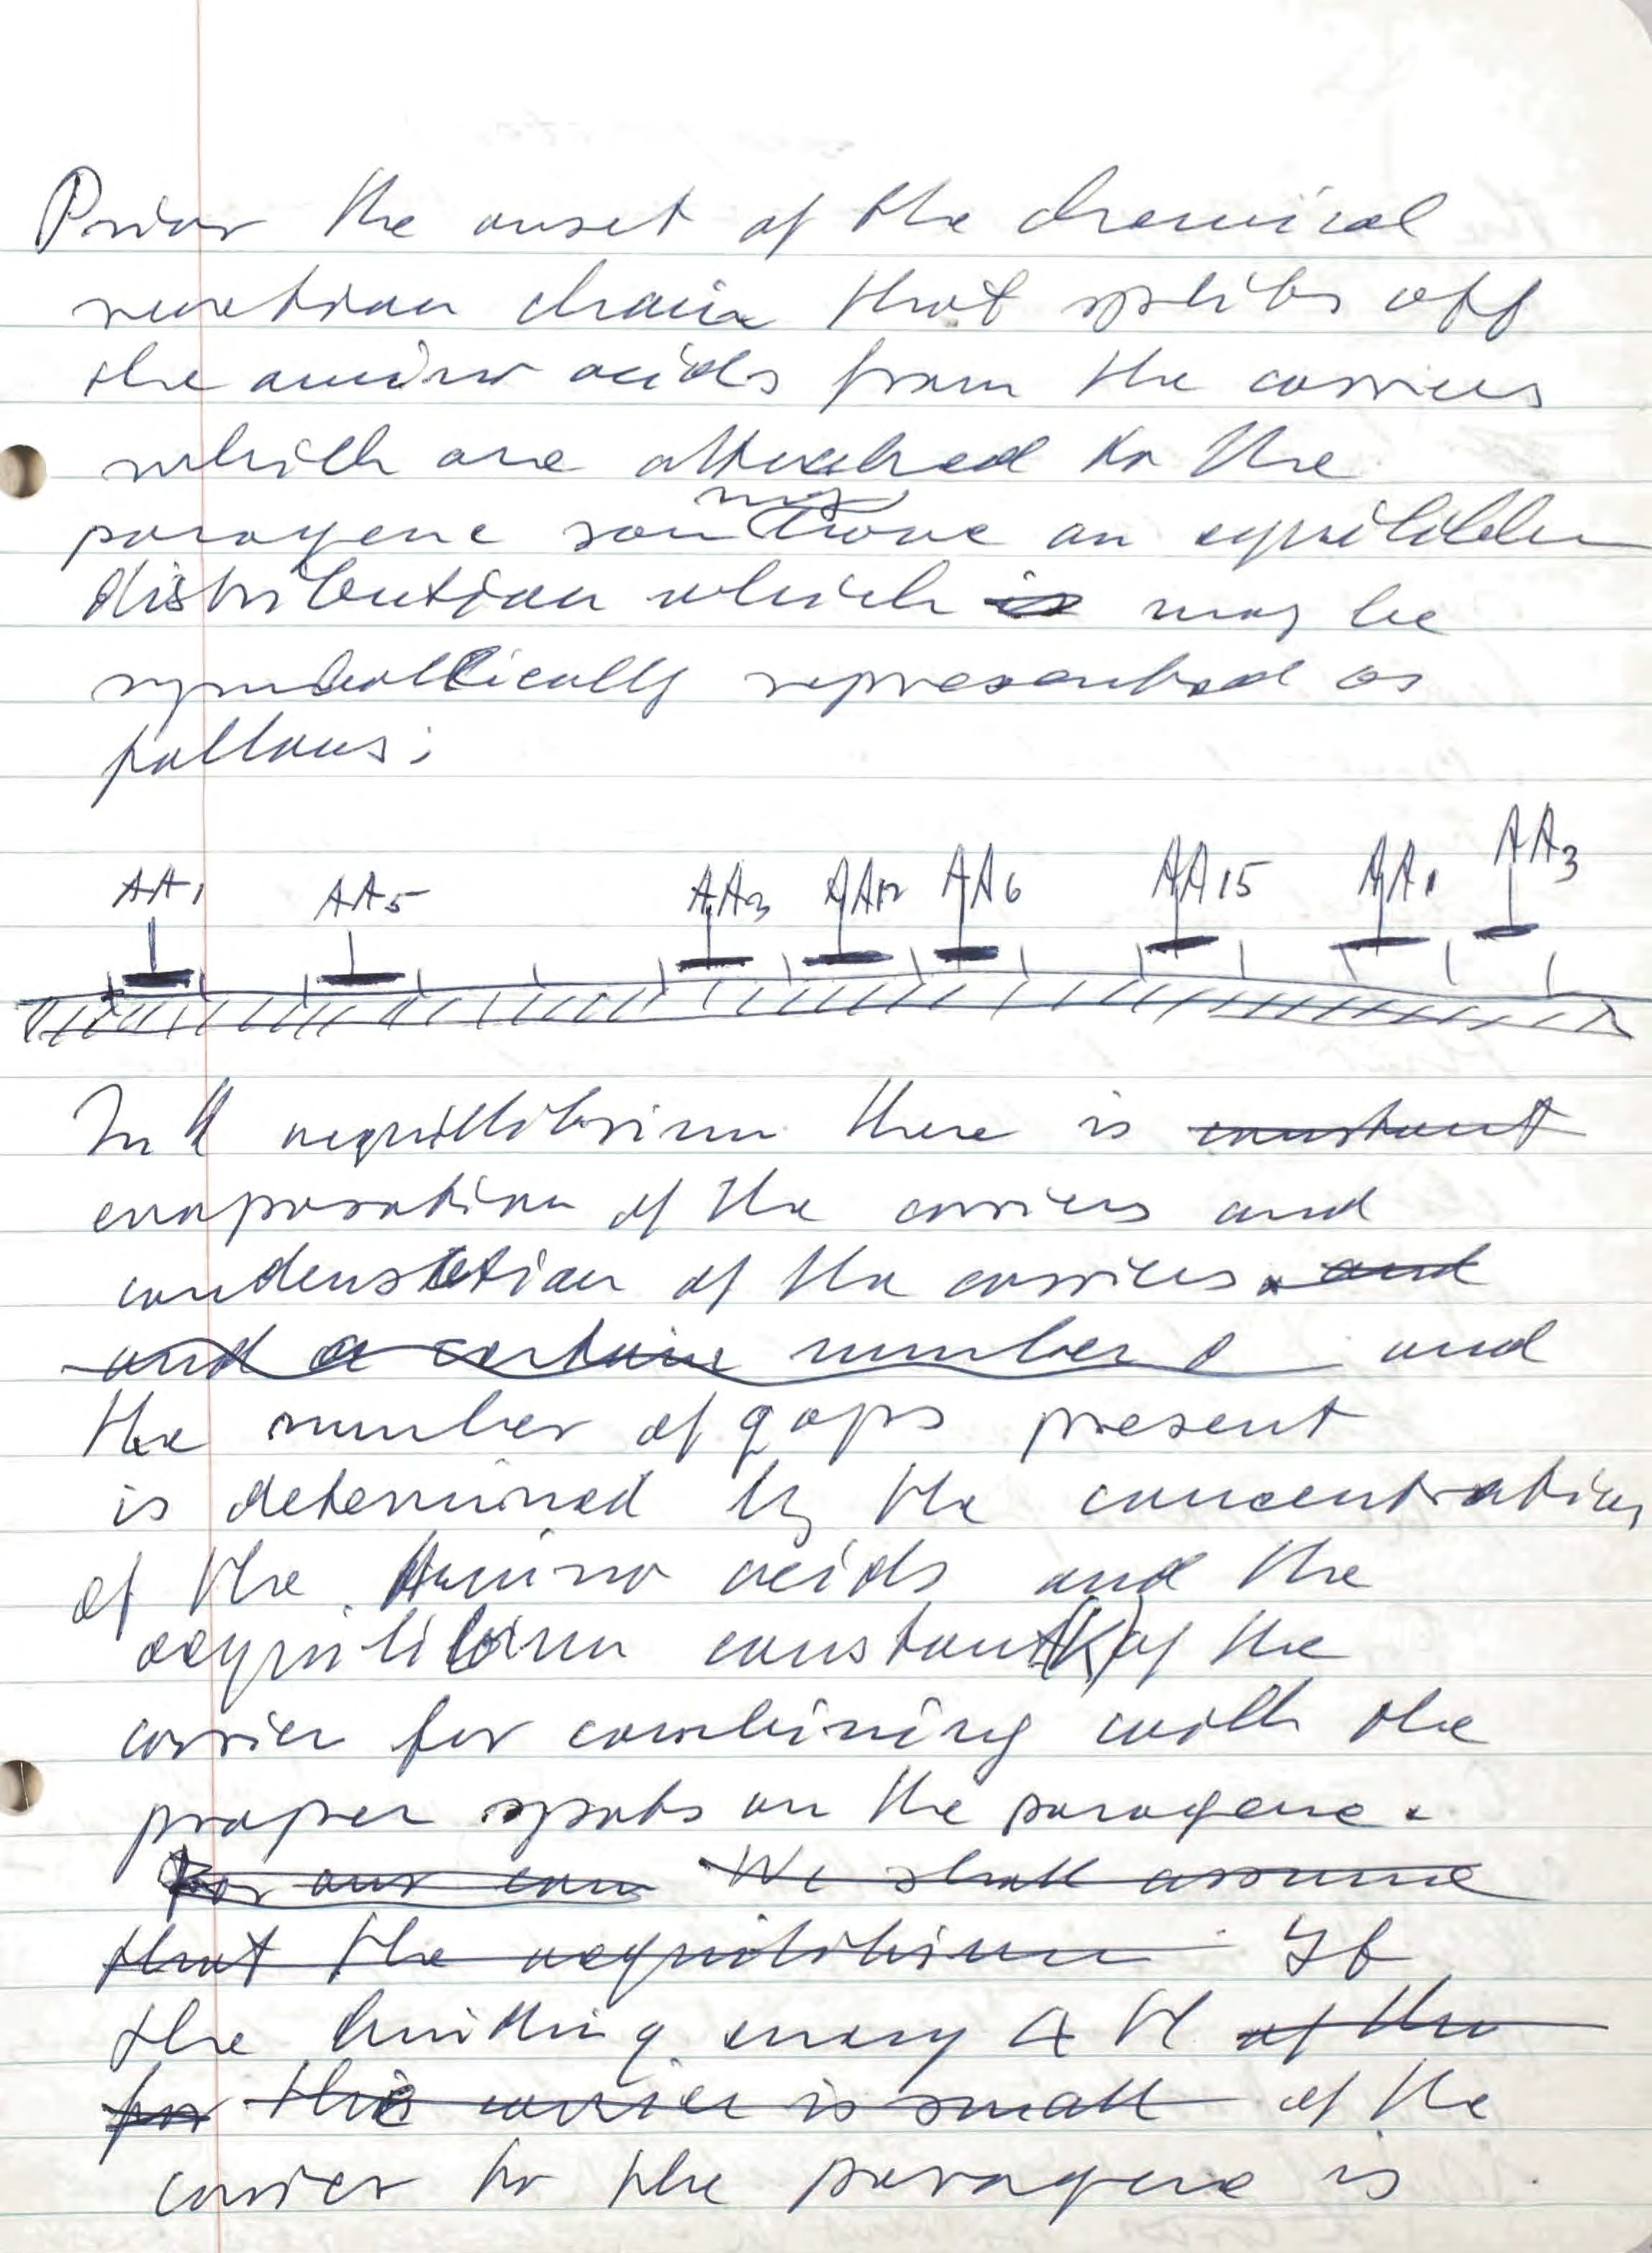 Prior the onset of the chemical
reaction chain that splits off
the amino acids from the carriers
which are attached to the
may
paragene have an
distribution which is may be
symbollically represented as
follows:
AA1 AA5 AA3 AA12 AA6 AA15 AA1 AA3
In aequillibrium there is constant
evaporation of the carriers and
condensation of the carriers. and
and a certain number and
the number of gaps present
is determined by the concentration
of the Amino acids and the
aequilibrium constant (K) of the
carrier for combining with the
proper spots on the paragene.
For our We shall assume
that the aequilibrium If
the binding energy Δ H of the
for this carrier is small of the
carrier to the paragene is